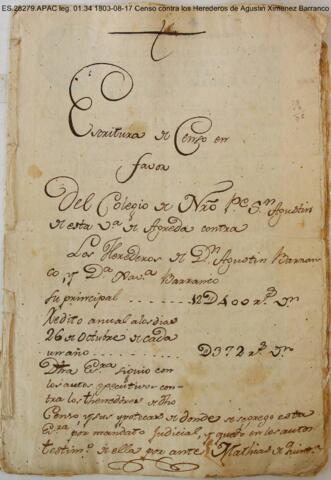 ES.28279.APAC leg. 01.34 1803-08-17 Censo contra los Herederos de Agustin Ximenez Barranco
Escritura de Censo en
favor
Del Colegio de Nrō Pe. Sn. Agustin
de esta Va. de Agreda contra
Los Herederos de Dn. Agustin Barran
co, y Da. Nava. Barranco
Su principal ---- 12D400 rs. vn
Redito anual a los dias
26 de Octubre de cada
un año ---- D372 rs. vn
Dha Esra. siguio con
los autos executivos con-
tra los thenedores de dho
Censo y sus ypotecas de donde se
esta
Esra. por mandato Judicial, y quedó en los autos
testimo. de ella por ante Mathias de